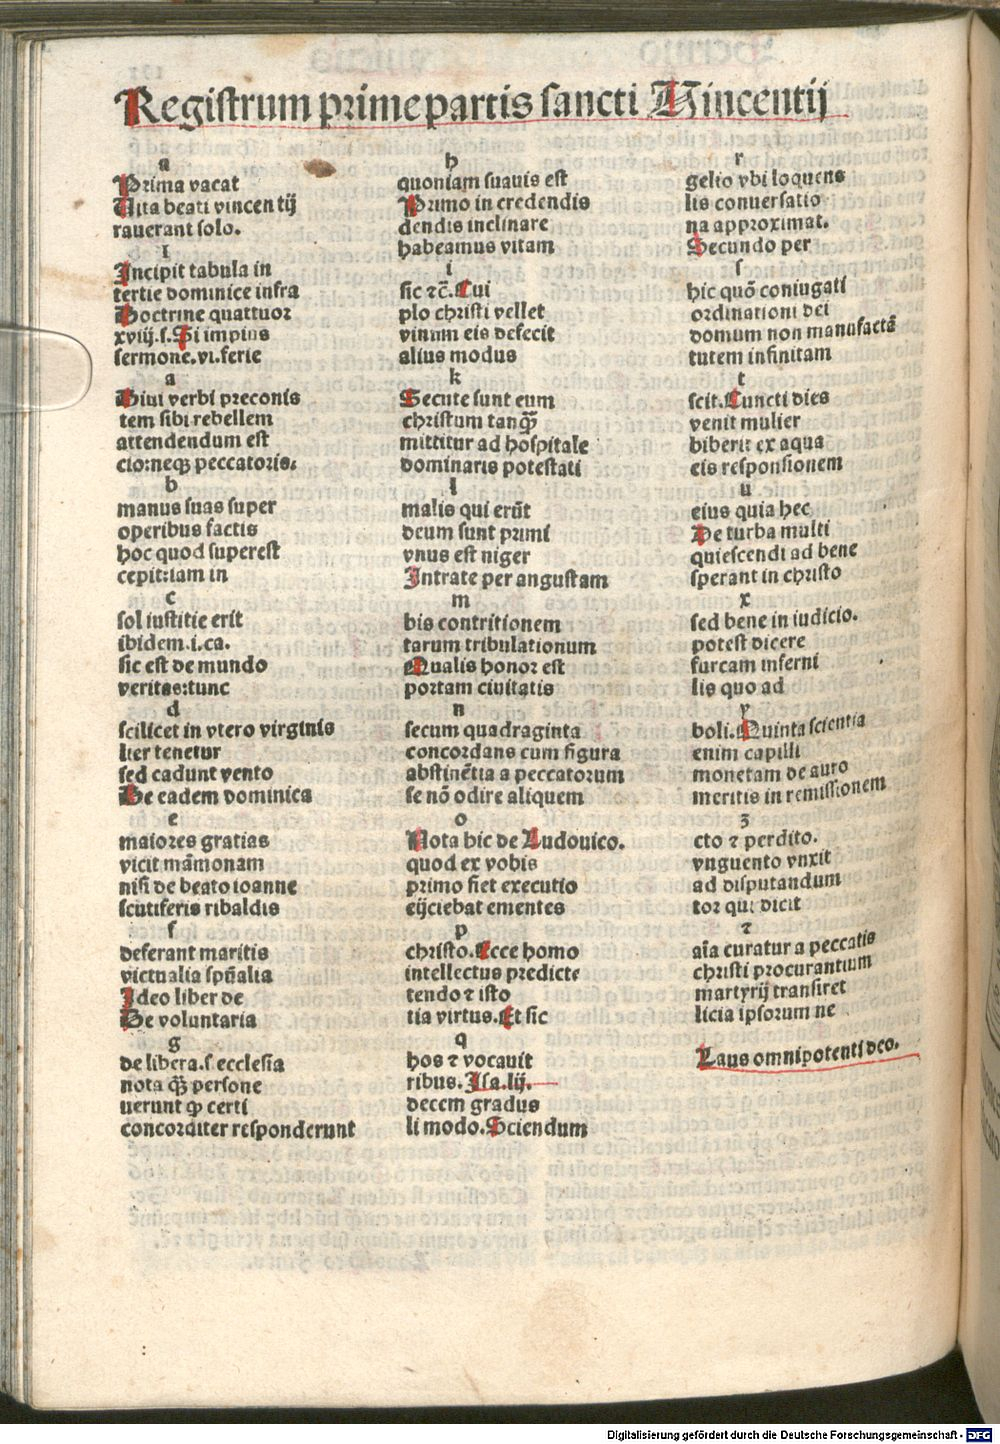 Registrum prime partis sancti Vincentij
a
Prima vacat
Vita beati vincentij
rauerant solo.
I
Incipit tabula in
tertie dominice infra
Doctrine quattuor
xviij.s. Si impius
sermone.vi.ferie
a
Diui verbi preconis
tem sibi rebellem
attendendum est
cio:neqȝ peccatoris.
b
manus suas super
operibus factis
hoc quod superest
cepit:iam in
c
sol iustitie erit
ibidem.i.ca.
sic est de mundo
veritas:tunc
d
scilicet in vtero virginis
lier tenetur
sed cadunt vento
De eadem dominica
e
maiores gratias
vicit mãmonam
nisi de beato ioanne
scutiferis ribaldis
f
deferant maritis
victualia spũalia
Ideo liber de
De voluntaria
g
de libera.s.ecclesia
nota qȝ persone
uerunt ꝙ certi
concorditer responderunt
h
quoniam suauis est
Primo in credendis
dendis inclinare
habeamus vitam
i
sic ⁊c̃. Cui
plo christi vellet
vinum eis defecit
alius modus
k
Secute sunt eum
christum tanqȝ̃
mittitur ad hospitale
dominaris potestati
l
malis qui erũt
dcum sunt primi
vnus est niger
Intrate per angustam
m
bis contritionem
tarum tribulationum
Qualis honor est
portam ciuitatis
n
secum quadraginta
concordans cum figura
abstinẽtia a peccatorum
se nõ odire aliquem
o
Nota hic de Ludouico.
quod ex vobis
primo fiet executio
eijciebat ementes
p
christo. Ecce homo
intellectus predicte
tendo ⁊ isto
tia virtus. Et sic
q
hos ⁊ vocauit
ribus. Isa.lij.
decem gradus
li modo. Sciendum
r
gelio vbi loquens
lis conuersatio
na approximat.
Secundo per
s
hic quõ coniugati
ordinationi dei
domum non manufactã
tutem infinitam
t
scit. Cuncti dies
venit mulier
biberit ex aqua
eis responsionem
u
eius quia hec
De turba multi
quiescendi ad bene
sperant in christo
x
sed bene in iudicio.
potest dicere
furcam inferni
lis quo ad
y
boli. Quinta scientia
enim capilli
monetam de auro
meritis in remissionem
z
cto ⁊ perdito.
vnguento vnxit
ad disputandum
tor qui dicit
⁊
aĩa curatur a peccatis
christi procurantium
martyrij transiret
licia ipsorum ne
Laus omnipotenti deo.
Digitalisierung gefördert durch die Deutsche Forschungsgemeinschaft - DFG